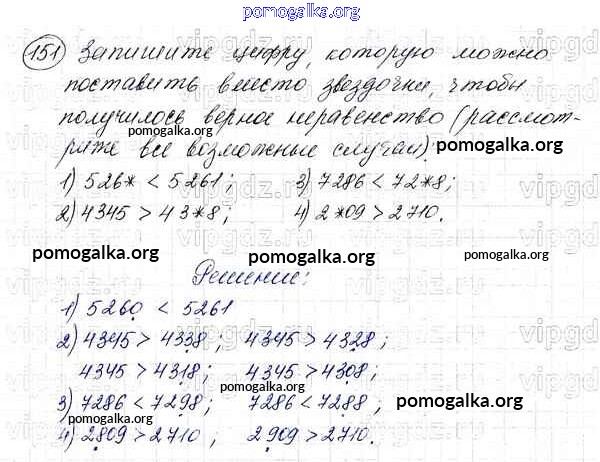 pomogalka.org
151 Запишите цифру, которую можно
поставить вместо звездочки, чтобы
получилось верное неравенство (рассмот-
pomogalka.org pomogalka.org
рите все возможные случаи):
1) 526* < 5261; 3) 7286 < 72*8;
2) 4345 > 43*8; 4) 2*09 > 2710.
pomogalka.org pomogalka.org
Решение:
1) 5260 < 5261
2) 4345 > 4338; 4345 > 4328;
4345 > 4318; 4345 > 4308;
pomogalka.org
3) 7286 < 7298; 7286 < 7288; pomogalka.org
pomogalka.org
4) 2809 > 2710; 2909 > 2710.
pomogalka.org